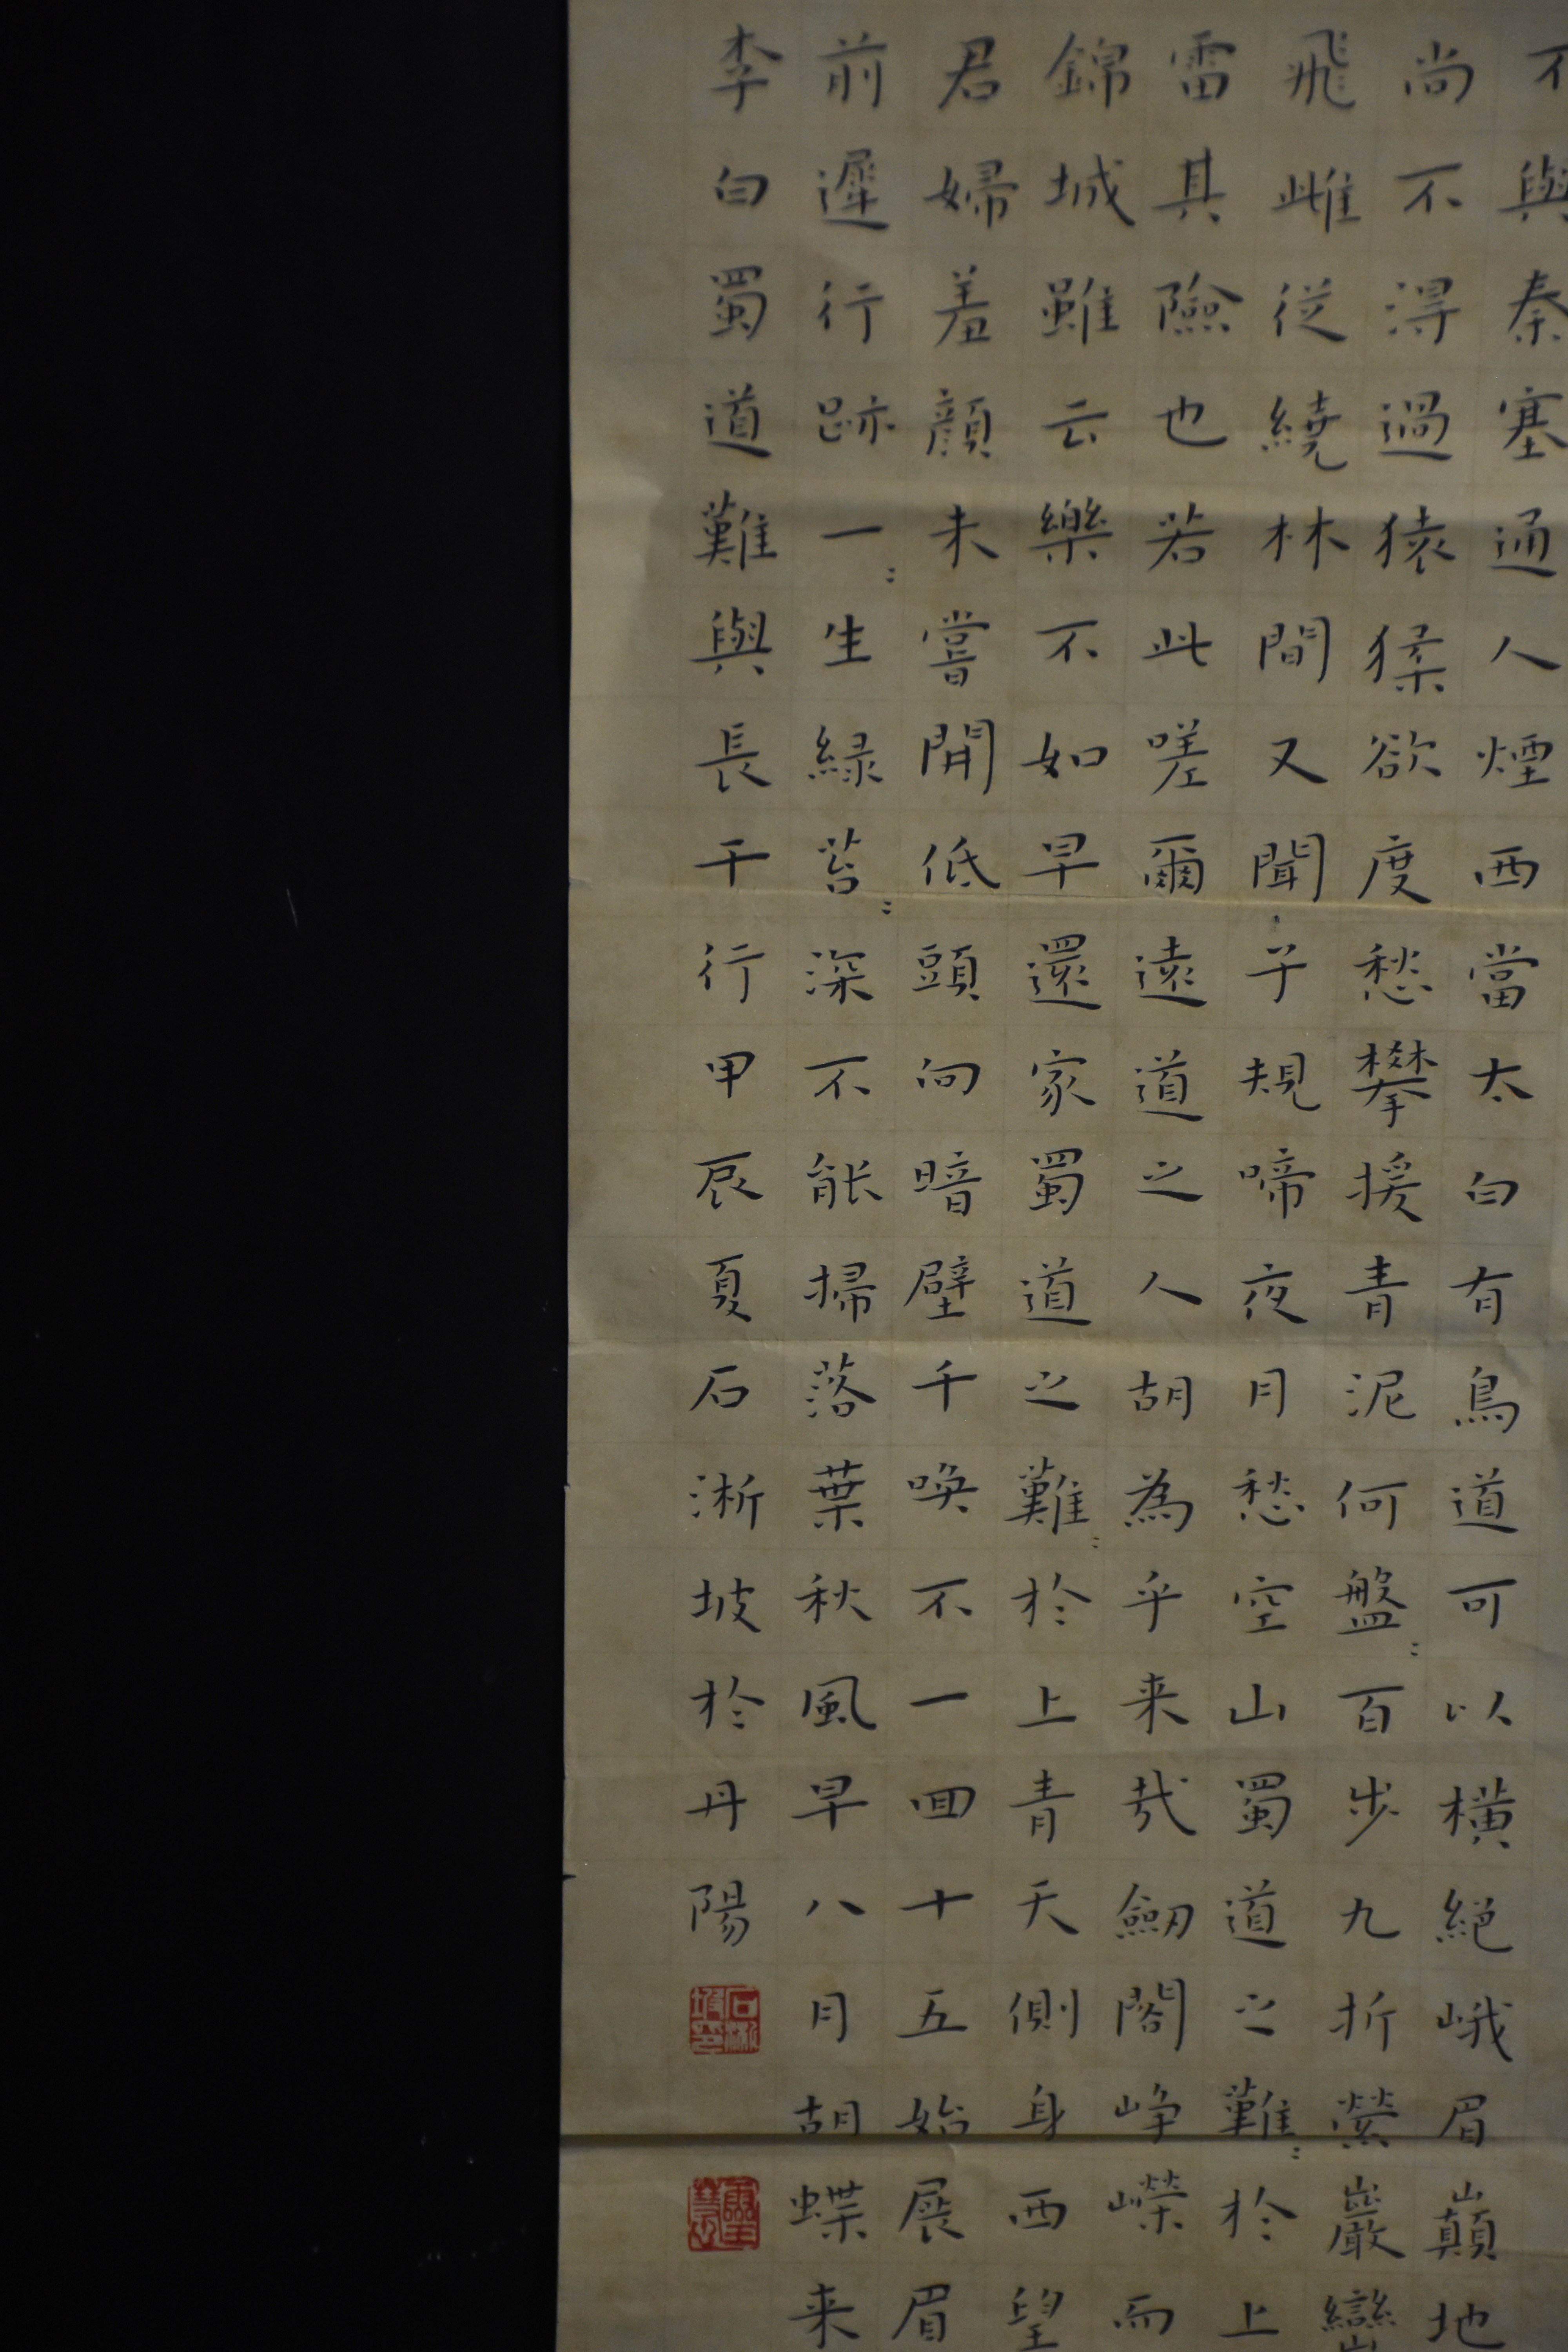 不與秦塞通人煙西當太白有鳥道可以橫絕峨眉巔地
尚不得過猿猱欲度愁攀援青泥何盤〻百步九折縈巖巒
飛雌從繞林間又聞子規啼夜月愁空山蜀道之難〻於上
雷其險也若此嗟爾遠道之人胡為乎来哉劒閣崢嶸而
錦城雖云樂不如早還家蜀道之難〻於上青天側身西望
君婦羞顏未嘗開低頭向暗壁千喚不一回十五始展眉
前遲行跡一〻生緑苔〻深不能掃落葉秋風早八月胡蝶来
李白蜀道難與長干行甲辰夏石淅坡於丹陽